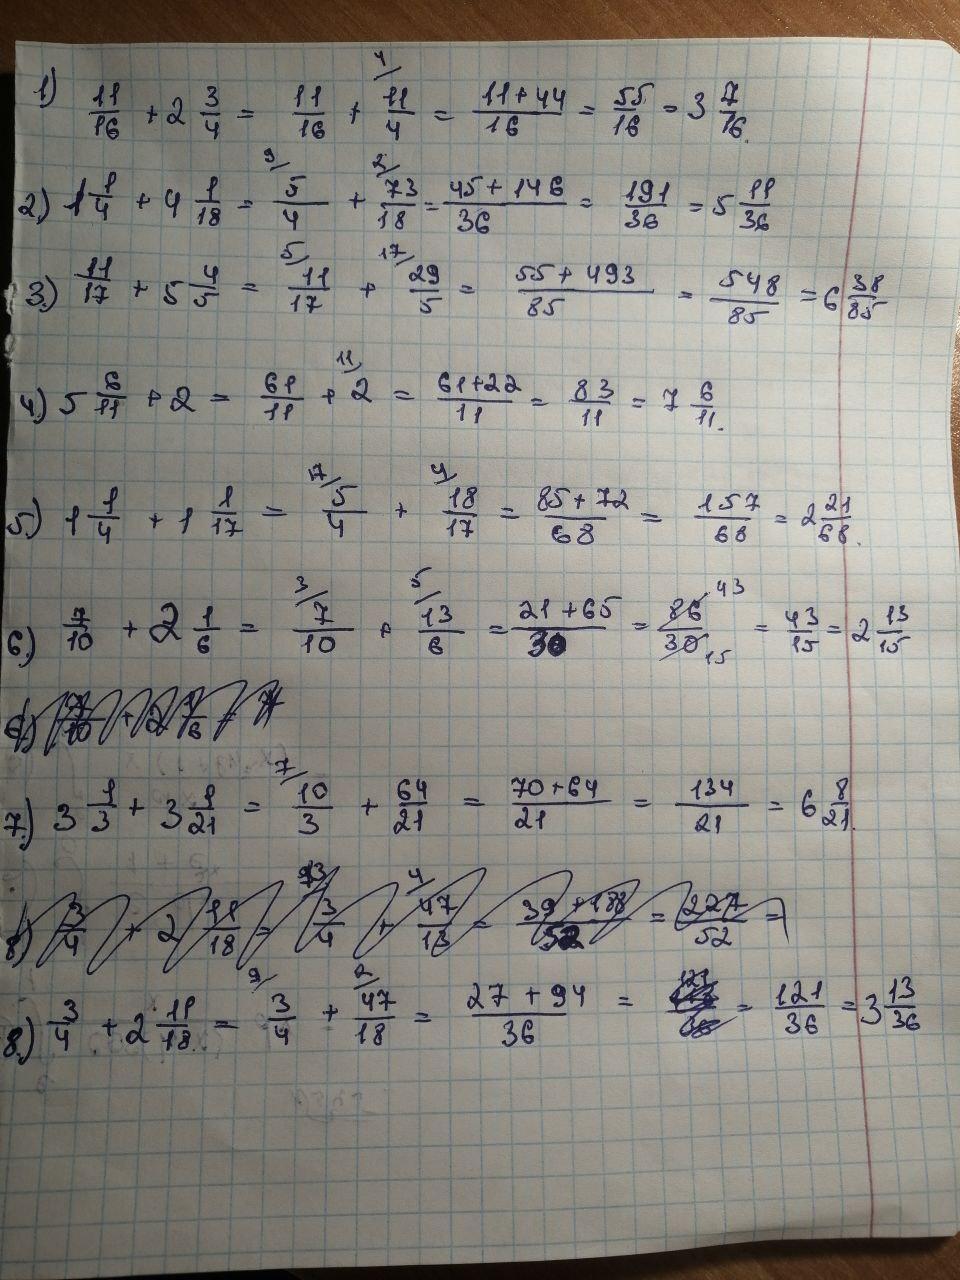 1) 11/16 + 2 3/4 = 11/16 + 4/ 11/4 = 11+44/16 = 55/16 = 3 7/16.
2) 1 1/4 + 4 1/18 = 9/ 5/4 + 2/ 73/18 = 45+146/36 = 191/36 = 5 11/36
3.) 11/17 + 5 4/5 = 5/ 11/17 + 17/ 29/5 = 55+493/85 = 548/85 = 6 38/85
4.) 5 6/11 + 2 = 61/11 + 11/ 2 = 61+22/11 = 83/11 = 7 6/11.
5.) 1 1/4 + 1 1/17 = 17/ 5/4 + 4/ 18/17 = 85+72/68 = 157/68 = 2 21/68.
6.) 7/10 + 2 1/6 = 3/ 7/10 + 5/ 13/6 = 21+65/30 = 86/30 43/15 = 43/15 = 2 13/15
6.) 7/10 + 2 1/6 = 7
7.) 3 1/3 + 3 1/21 = 7/ 10/3 + 64/21 = 70+64/21 = 134/21 = 6 8/21.
8) 3/4 + 2 11/18 = 13/ 3/4 + 4/ 47/13 = 39+188/52 = 227/52 =
8.) 3/4 + 2 11/18 = 9/ 3/4 + 2/ 47/18 = 27+94/36 = 121/36 = 3 13/36